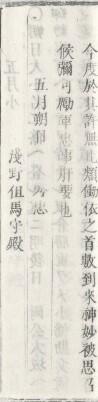 今度於其許無比類働依之首數到来神妙被思召
候彌可勵軍忠事肝要也
五月朔日
淺野但馬守殿